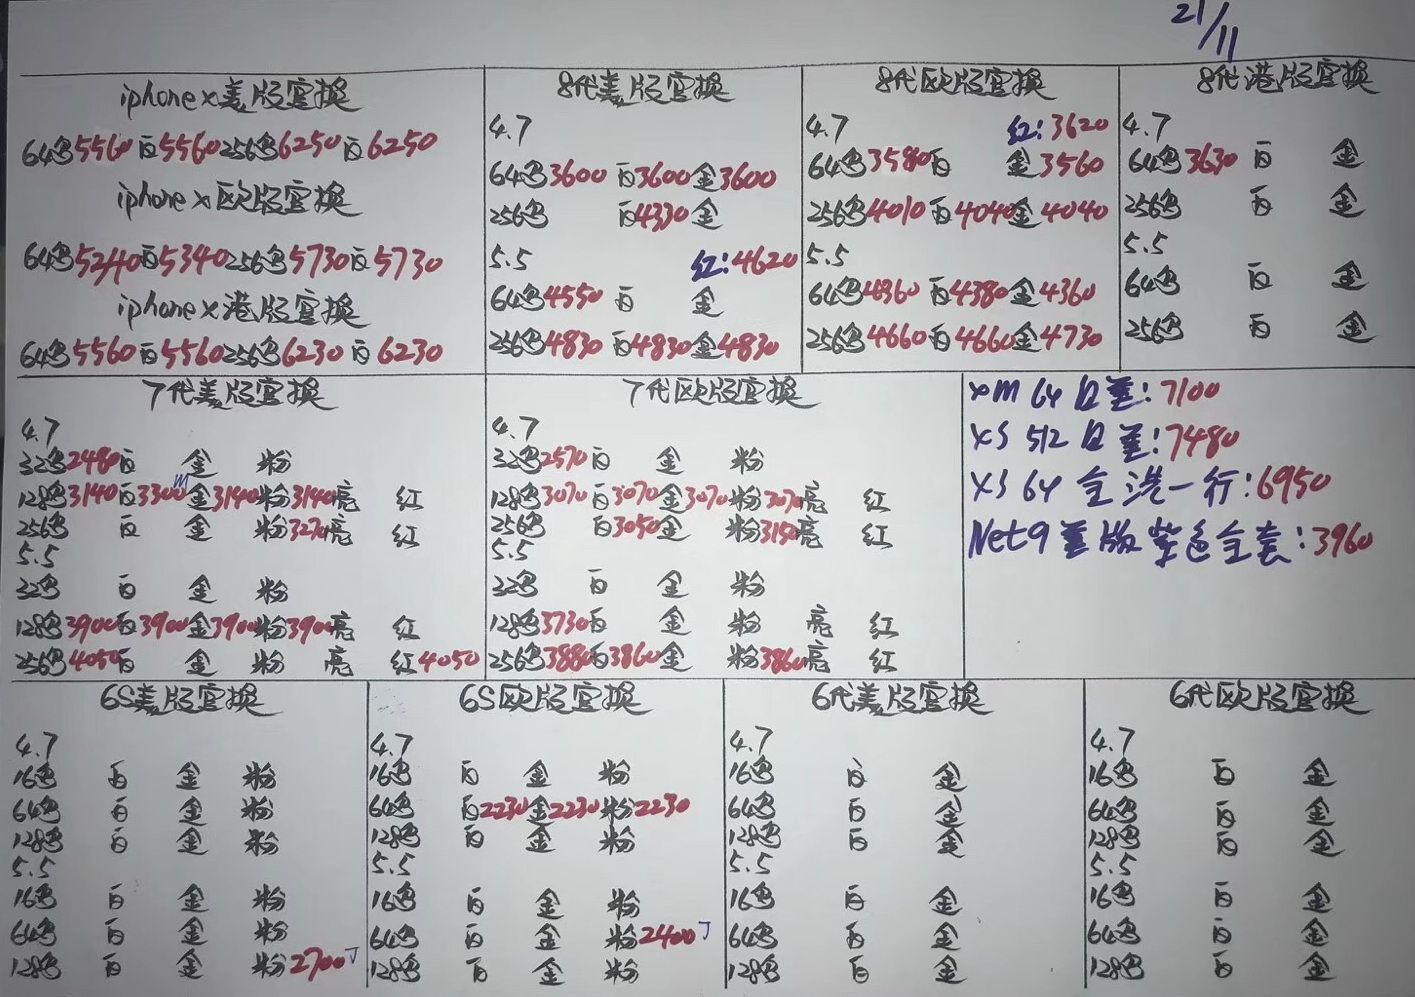 21/11
iphone x美版官换
64黑5560白5560 256黑6250白6250
iphone x欧版官换
64黑5240白5340 256黑5730白5730
iphone x港版官换
64黑5560白5560 256黑6230白6230
8代美版官换
4.7
64黑3600 白3600金3600
256黑 白4330金
5.5 红:4620
64黑4550白 金
256黑4830 白4830金4830
8代欧版官换
4.7 红:3620
64黑3580白 金3560
256黑4010白4040金4040
5.5
64黑4360白4380金4360
256黑4660白4660金4730
8代港版官换
4.7
64黑3630 白 金
256黑 白 金
5.5
64黑 白 金
256黑 白 金
7代美版官换
4.7
32黑2480白 金 粉
128黑3140白3300金3140粉3140亮 红
256黑 白 金 粉3270亮 红
5.5
32黑 白 金 粉
128黑3900白3900金3900粉3900亮 红
256黑4050白 金 粉 亮 红4050
7代欧版官换
4.7
32黑2570白 金 粉
128黑3070白3070金3070粉3070亮 红
256黑 白3050金 粉3150亮 红
5.5
32黑 白 金 粉
128黑3730白 金 粉 亮 红
256黑3880白3860金 粉3860亮 红
xm 64 日差:7100
xs 512 日差:7480
xs 64 全洗一行:6950
Net9 美版 紫色全套:3960
6S美版官换
4.7
16黑 白 金 粉
64黑 白 金 粉
128黑 白 金 粉
5.5
16黑 白 金 粉
64黑 白 金 粉
128黑 白 金 粉2700J
6S欧版官换
4.7
16黑 白 金 粉
64黑 白2230金2230粉2230
128黑 白 金 粉
5.5
16黑 白 金 粉
64黑 白 金 粉2400J
128黑 白 金 粉
6代美版官换
4.7
16黑 白 金
64黑 白 金
128黑 白 金
5.5
16黑 白 金
64黑 白 金
128黑 白 金
6代欧版官换
4.7
16黑 白 金
64黑 白 金
128黑 白 金
5.5
16黑 白 金
64黑 白 金
128黑 白 金